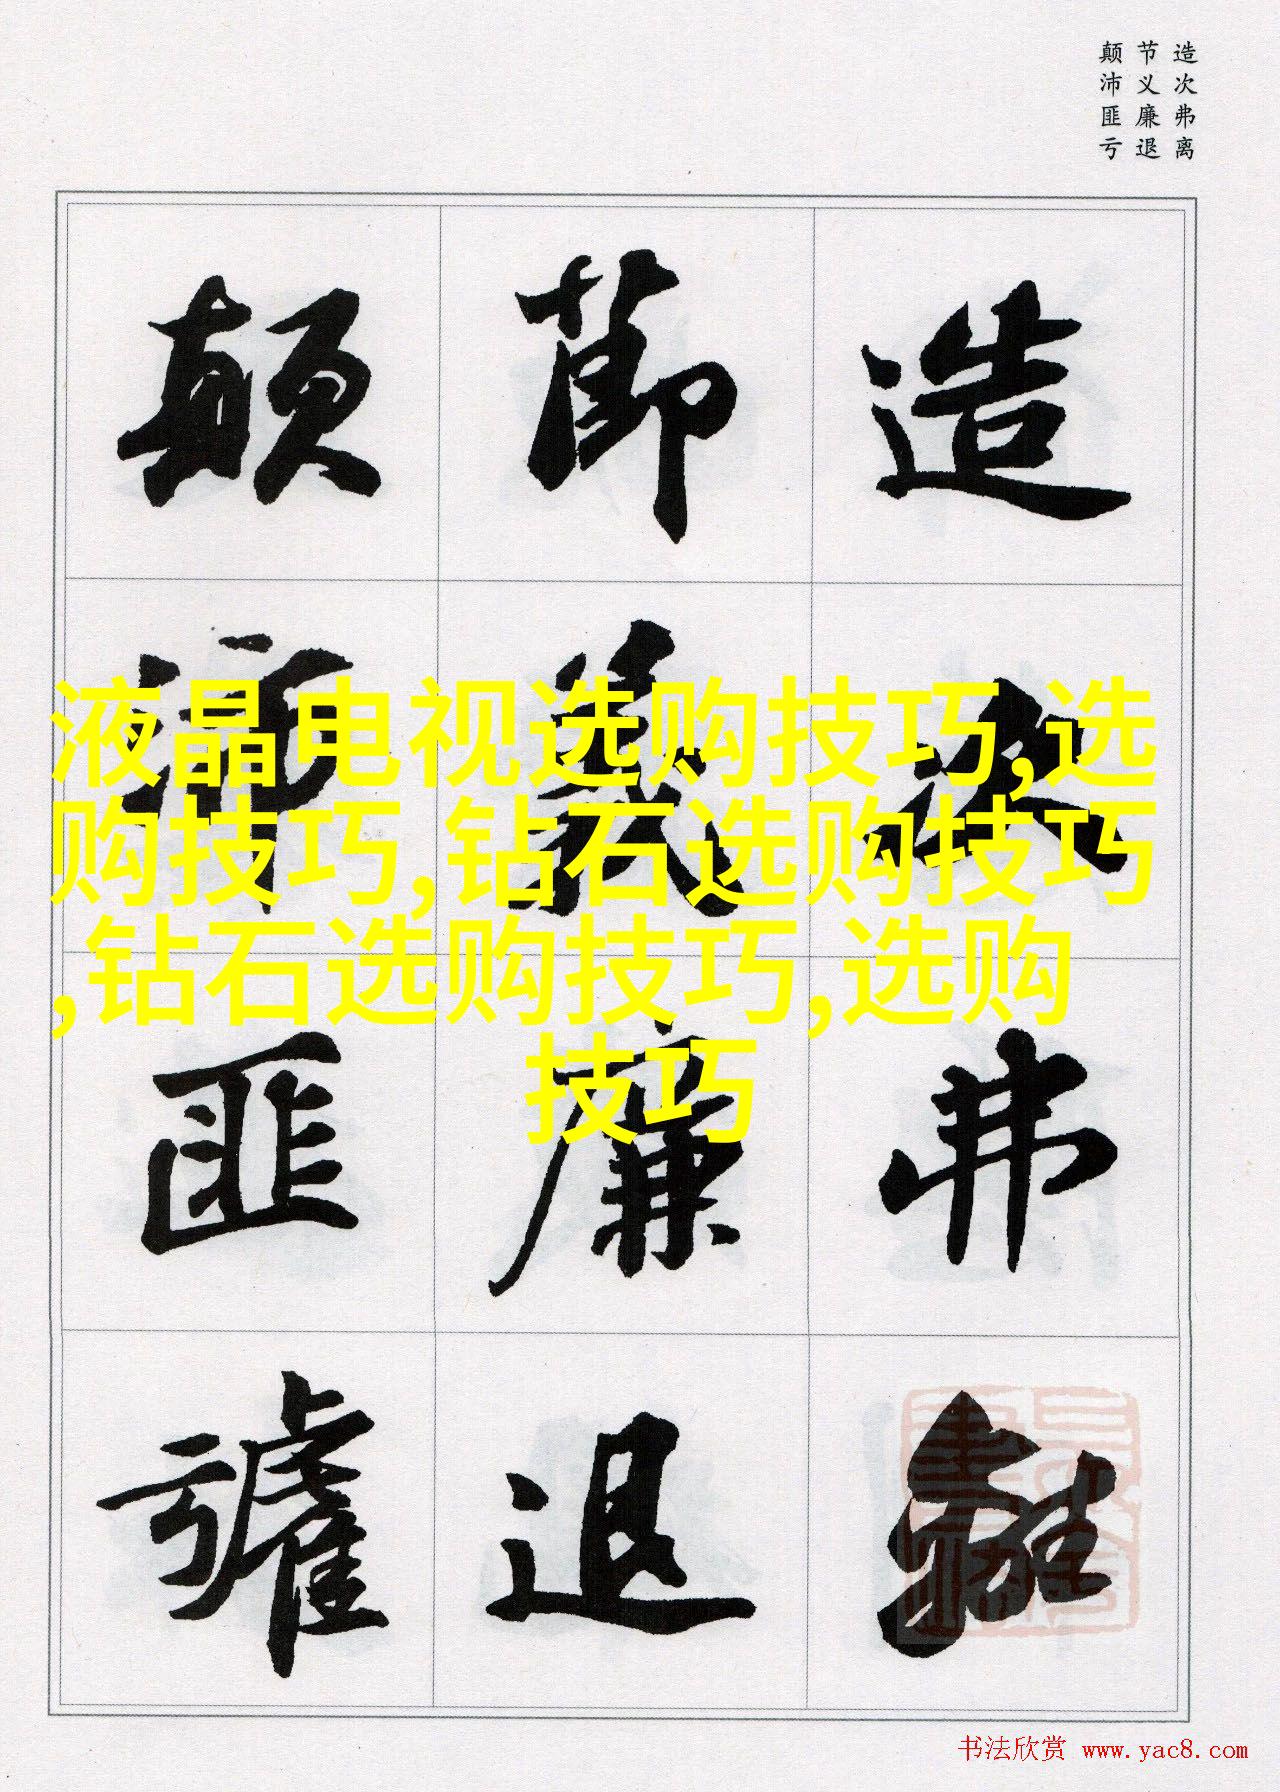 造次弗离
节义廉退
颠沛匪亏
造次弗離
節義廉退
顛沛匪虧
液晶电视选购技巧,选
购技巧,钻石选购技巧
,钻石选购技巧,选购
技巧
书法欣赏 www.yac8.com